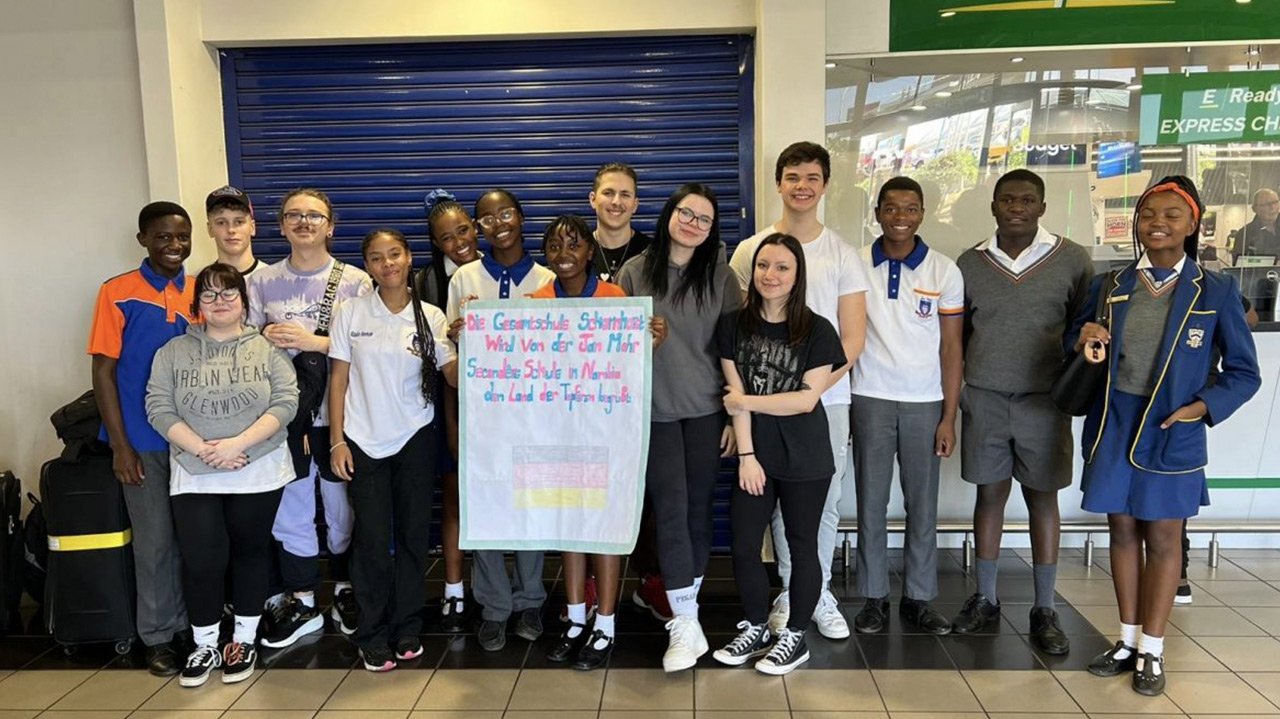 E Ready
EXPRESS CH
Budget
URBAN WEAR
GLENWOOD
Die Gesamtschule Scharnhorst
Wird von der Jan Mohr
Secondary Schule in Namibia
dem Land der Tapferen begrüßt